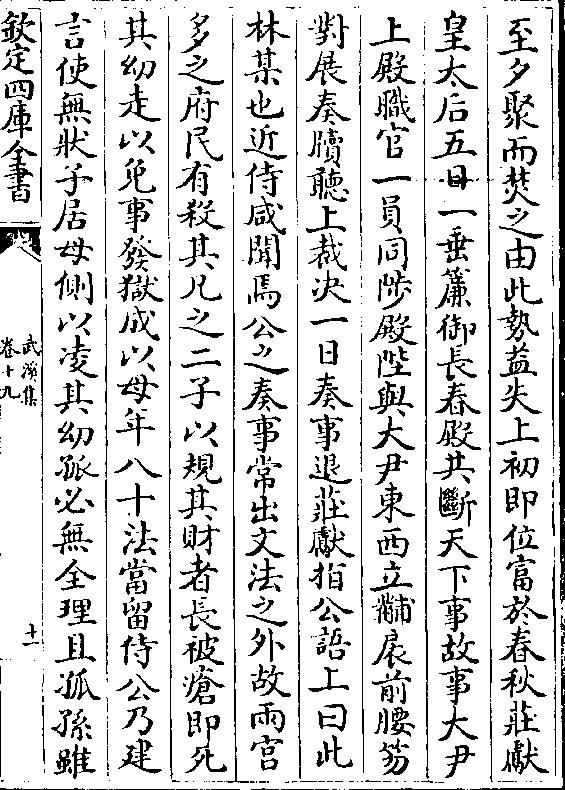 至夕聚而焚之由此勢益失上初即位富於春秋莊獻
皇太后五日一垂簾御長春殿共斷天下事故事大尹
上殿職官一員同陟殿陛與大尹東西立黼扆前腰笏
對展奏牘聽上裁决一日奏事退莊獻指公語上曰此
林某也近侍咸聞焉公之奏事常出文法之外故兩宫
多之府民有殺其兄之二子以規其財者長被瘡即死
其幼走以免事發獄成以母年八十法當留侍公乃建
言使無狀子居母側以凌其幼孤必無全理且孤孫雖
欽定四庫全書
武溪集
卷十九
十一